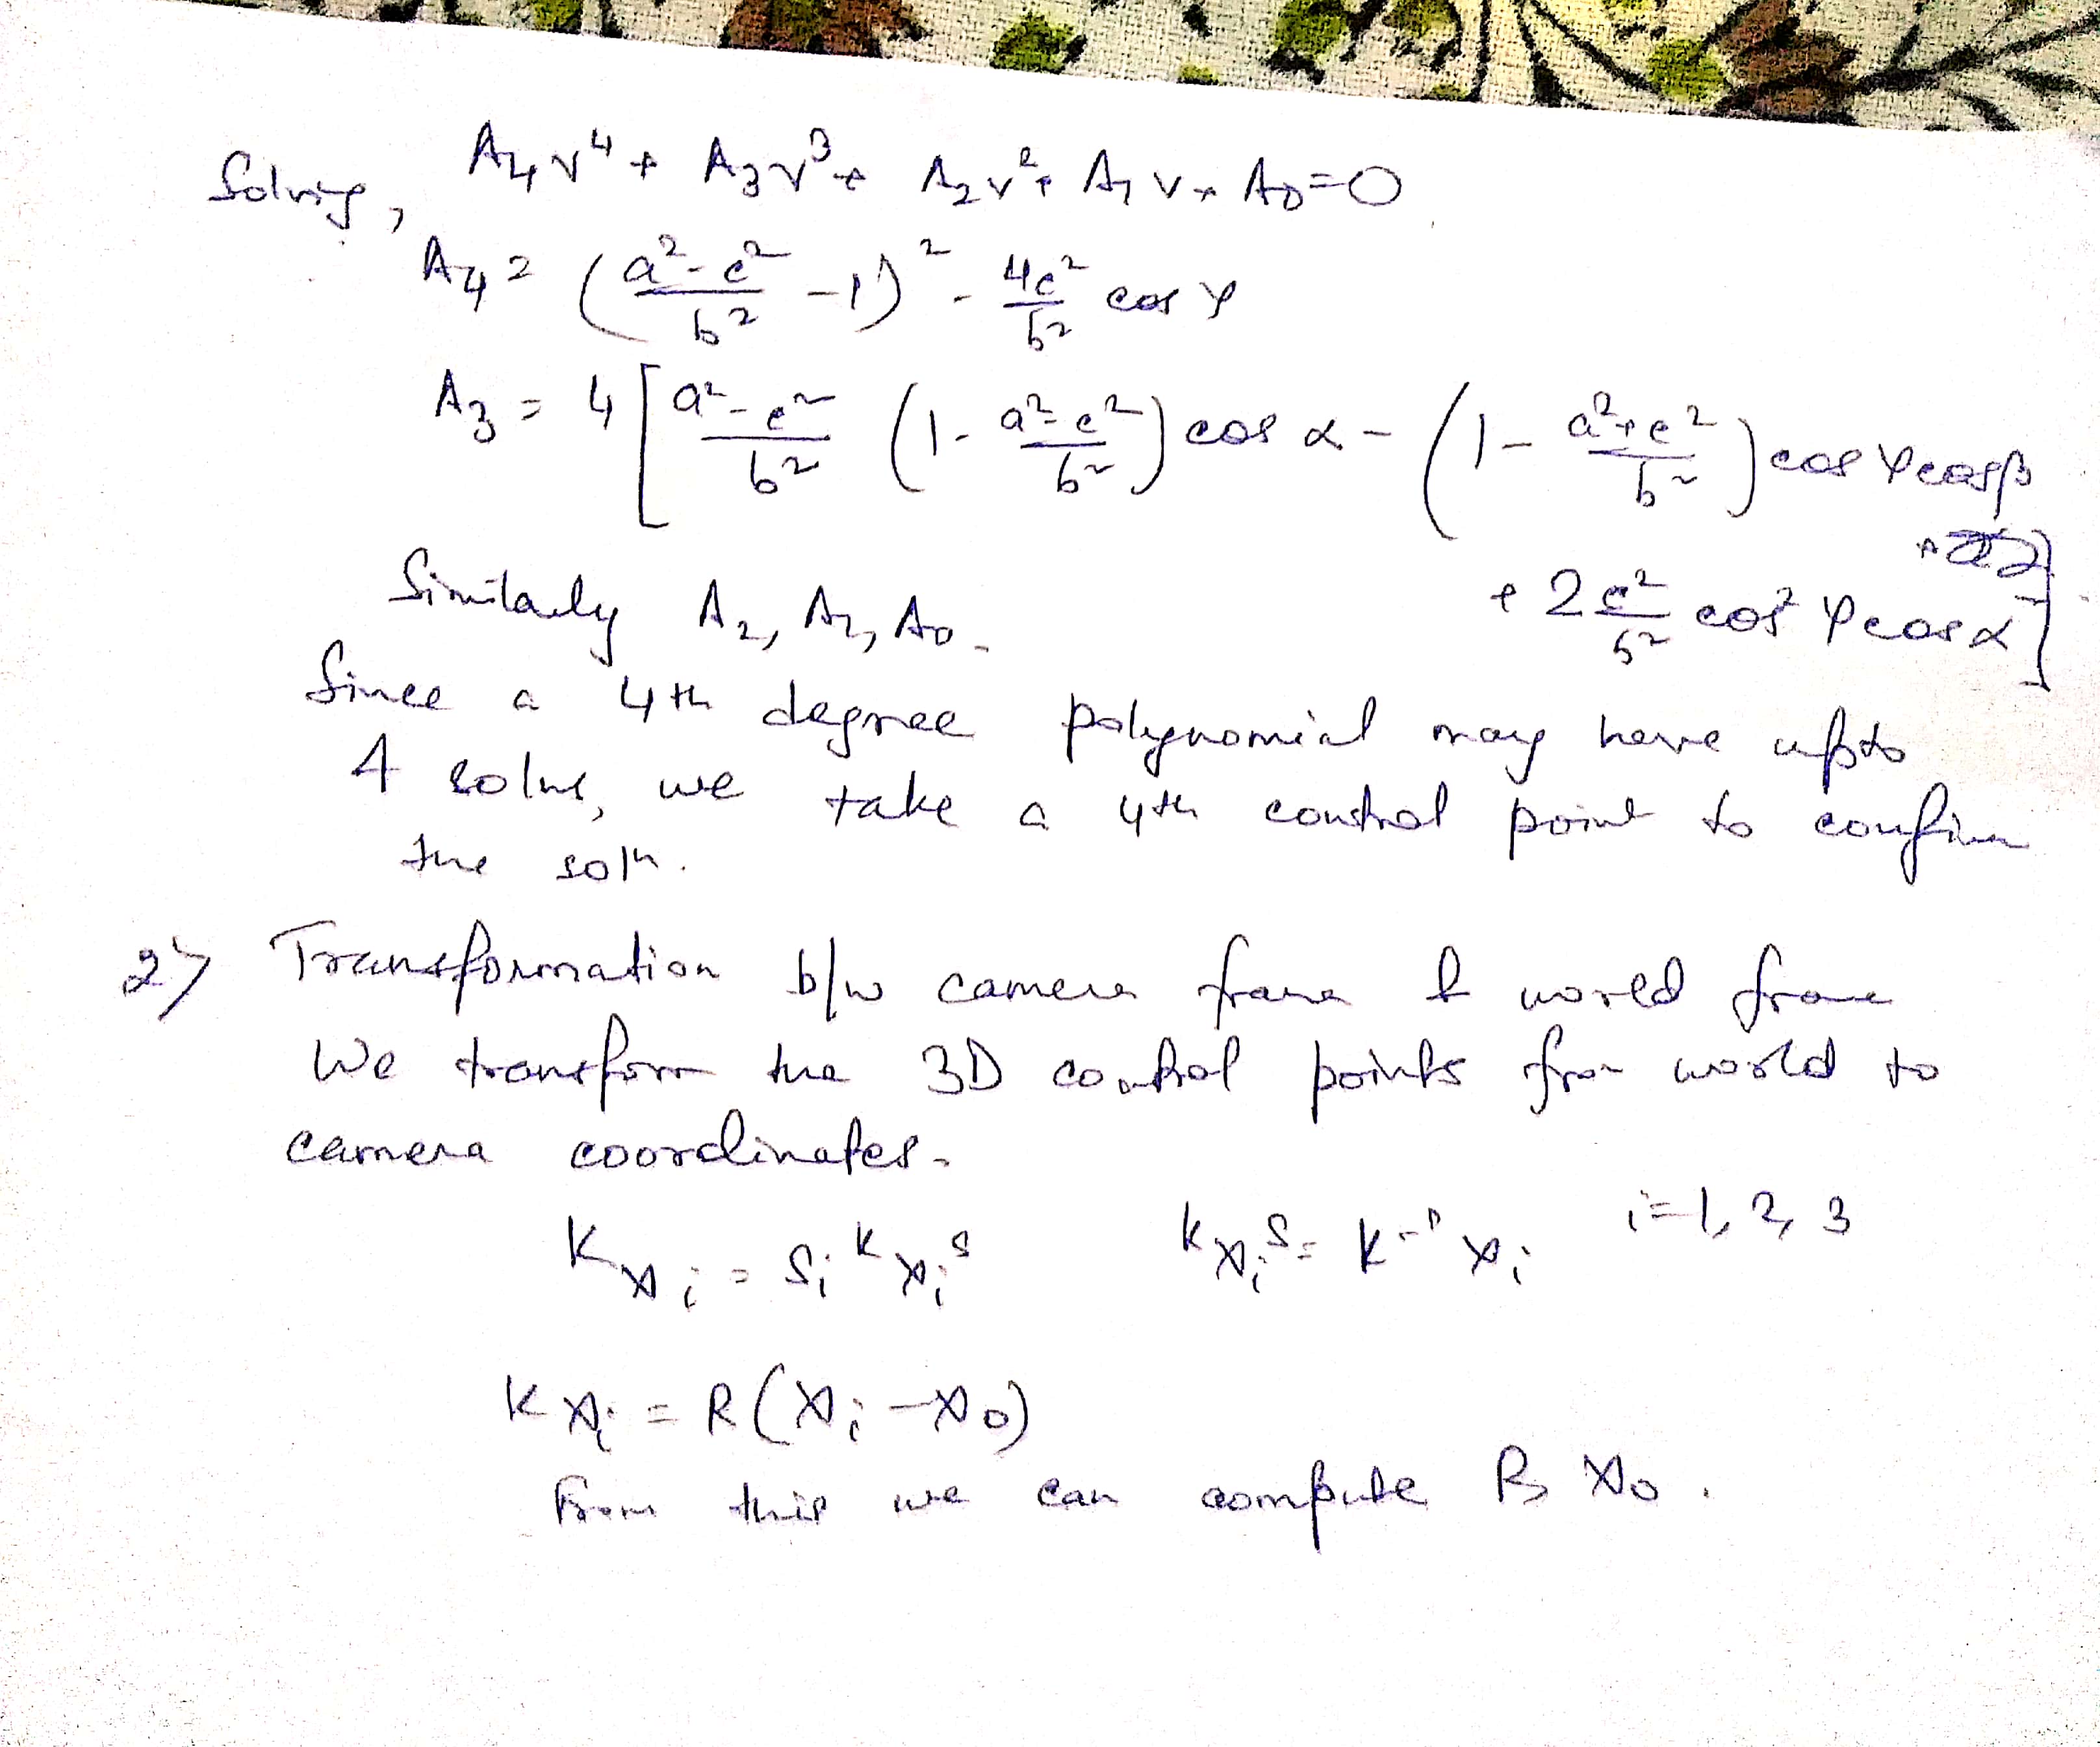 Solving, A₄v⁴ + A₃v³ + A₂v² + A₁v + A₀ = 0
A₄ = ((a²-c²)/b² - 1)² - (4c²/b²) cos φ
A₃ = 4[(a²-c²)/b² (1 - (a²-c²)/b²) cos α - (1 - (a²+c²)/b²) cos φ cos β
+ 2 (c²/b²) cos² φ cos α]
Similarly A₂, A₁, A₀.
Since a 4th degree polynomial may have upto
4 solns, we take a 4th control point to confirm
the soln.
2> Transformation b/w camera frame & world frame
We transform the 3D control points from world to
camera coordinates.
ᵏXᵢ = Sᵢ ᵏXᵢˢ ᵏXᵢˢ = K⁻¹ xᵢ i=1, 2, 3
ᵏXᵢ = R(Xᵢ - X₀)
From this we can compute R, X₀.